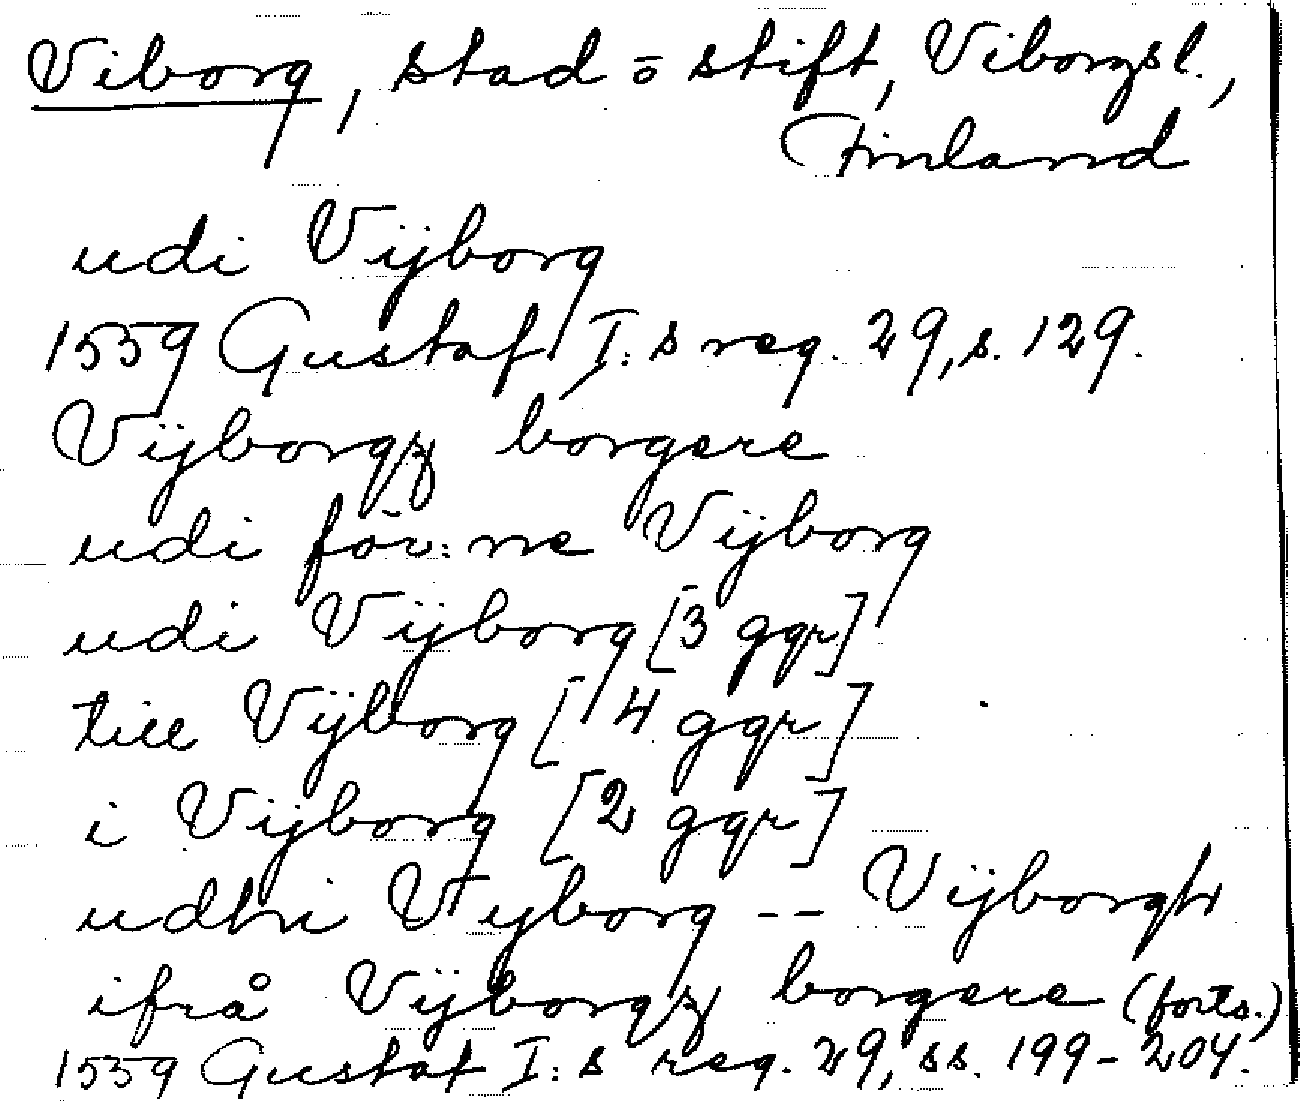 Viborg, stad o stift, Viborgsl.,
Finland
udi Vijborg
1559 Gustaf I:s reg. 29, s. 129.
Vijborgz borgere
udi för:ne Vijborg
udi Vijborg [3 ggr]
till Vijborg [4 ggr]
i Vijborg [2 ggr]
udhi Vijborg -- Vijborgh
ifrå Vijborgz borgere (forts.)
1559 Gustaf I:s reg. 29, ss. 199-204.